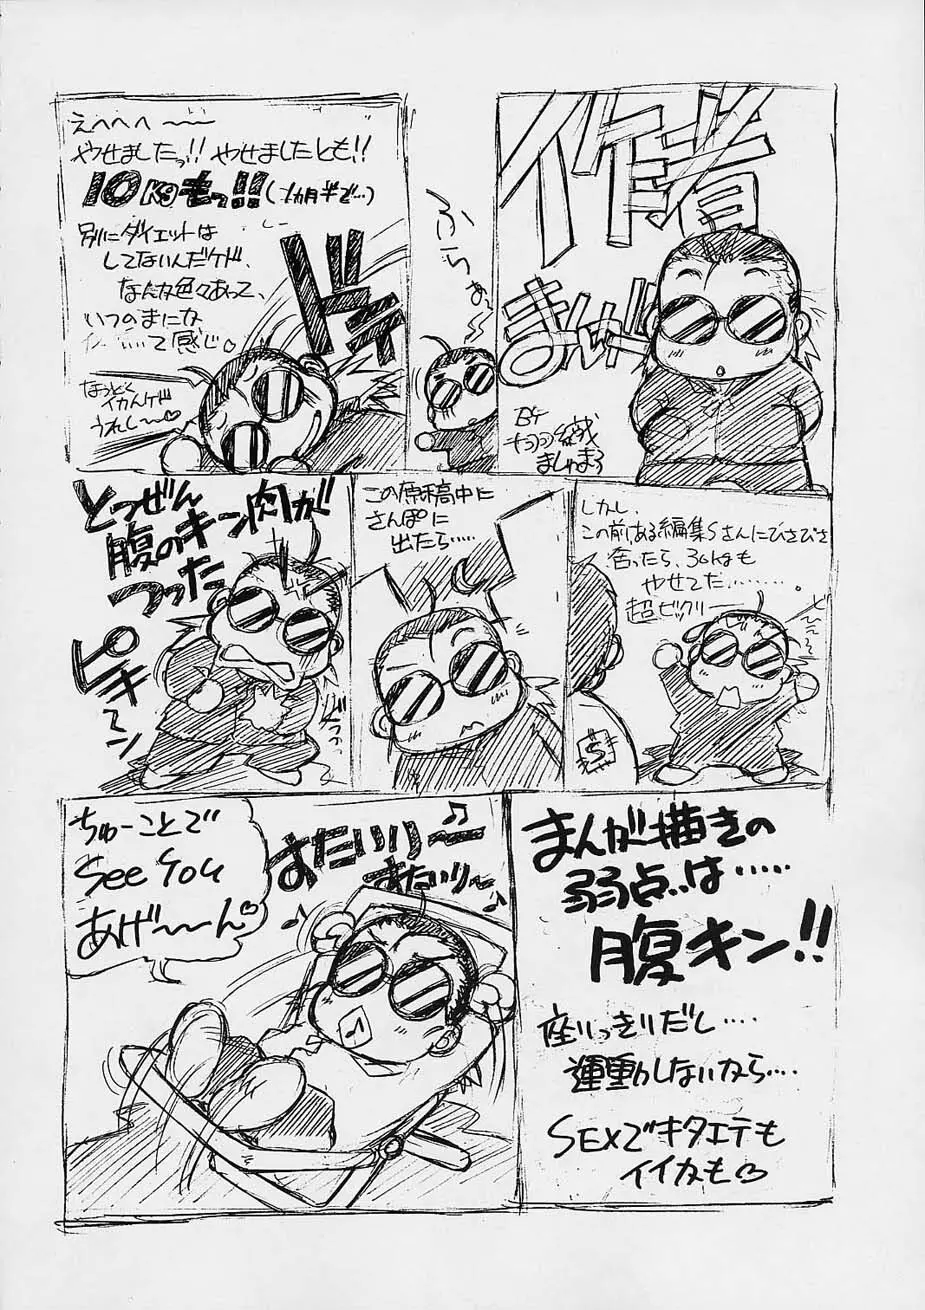 作者
まんが
BY
ましゅまろ
ふらぁ
えへへへ〜〜
やせましたっ!! やせましたとも!!
10Kgもっ!!(1ヵ月半で…)
別にダイエットは
してないんだケド、
なんか色々あって、
いつのまにな
て感じ♡
なっとく
イカんケド
うれし〜♡
ドキ
しかし、
この前、ある編集Sさんにひさびさ
会ったら、30kgも
やせてた………。
超ビックリー
S
この原稿中に
さんぽに
出たら……
とつぜん
腹のキン肉が
つった
ピキーン
まんが描きの
弱点は……
腹キン!!
座りっきりだし…
運動しないから…
SEXでキタエテも
イイかも♡
♪
すたいりー
すたいりー
♪
♪
ちゅーことで
See You
あげ〜〜ん♡